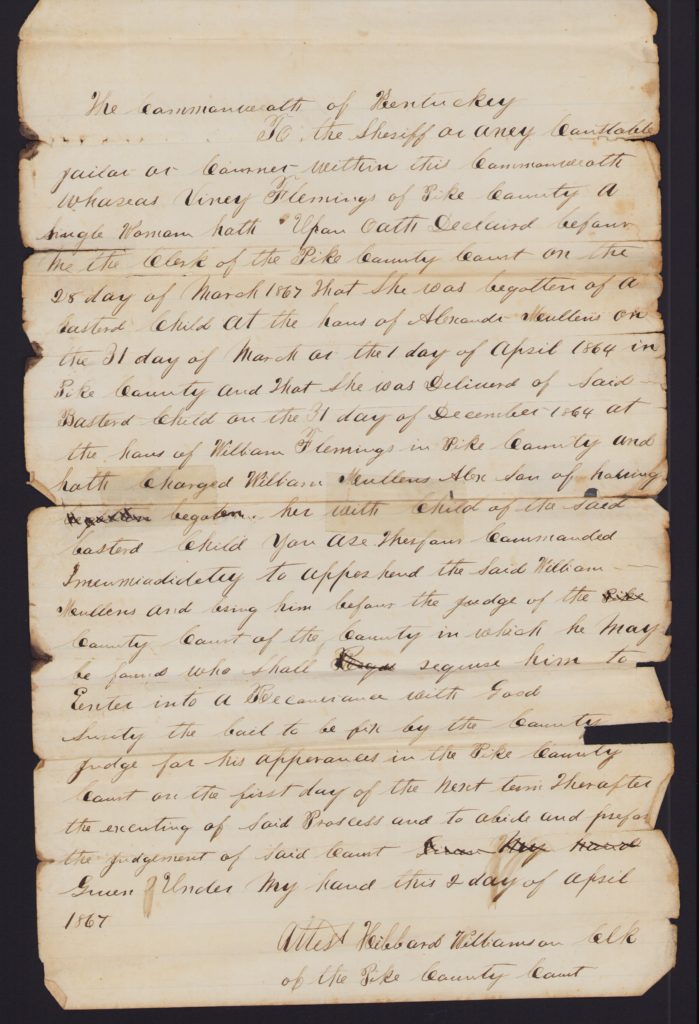 The Commonwealth of Kentuckey
To. the Sheriff or aney Constable
jailor or Courner within this Commonwealth
Whareas Viney Flemings of Pike County A
single Womam hath Upon Oath Declaird befour
me the Clerk of the Pike County Court on the
28 day of March 1867 That She was begotten of a
basterd Child At the hous of Alexande Mullens on
the 31 day of March or the 1 day of April 1864 in
Pike County and That She was Deliverd of Said
Basterd Child on the 31 day of December 1864 at
the hous of William Flemings in Pike County and
hath Charged William Mullens Alex Son of having
begotten her with Child of the Said
basterd Child You are Therfour Commanded
to the Said William
Mullens and bring him befour the judge of the Pike
County Court of the County in which he May
be found who Shall require him to
Eenter into a with Good
Surity the bail to be fix by the County
Judge for his apperances in the Pike County
Court on the first day of the Next term Therafter
the executing of Said Proscess and to abide and
the judgement of Said Court Given My Hand
Given Under My hand this 2 day of April
1867
Attest Hibbard Williamson Clk
of the Pike County Court